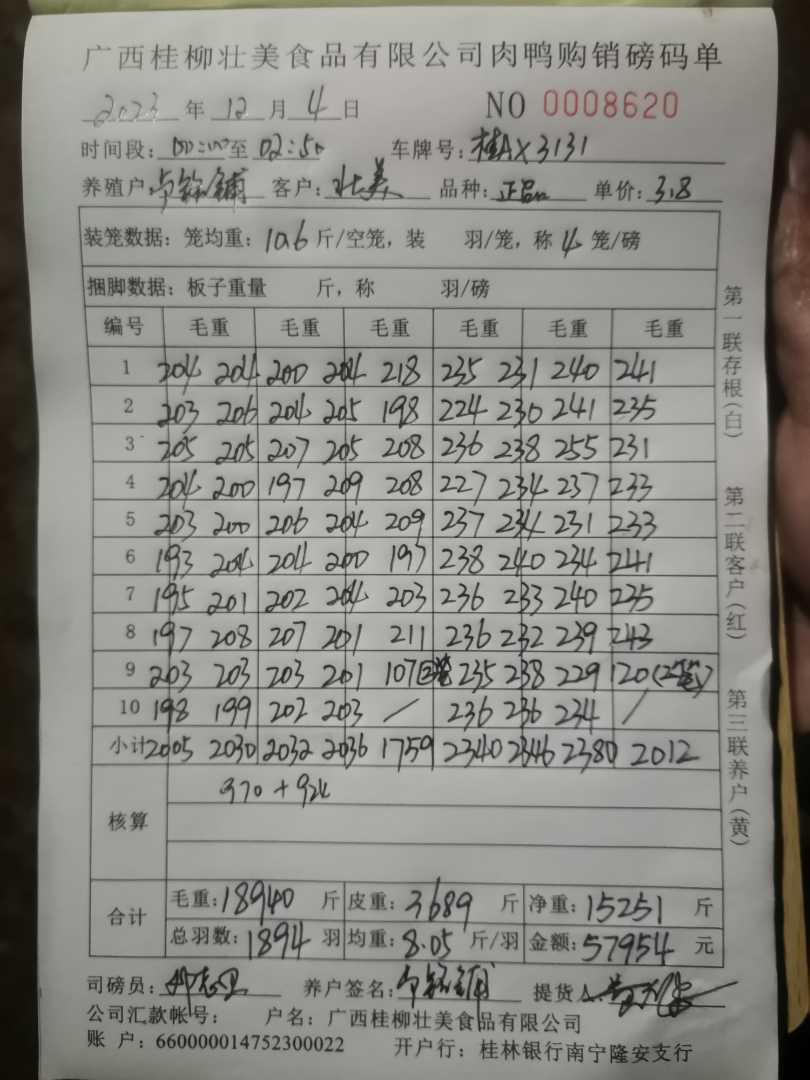 广西桂柳壮美食品有限公司肉鸭购销磅码单
2023年12月4日 NO 0008620
时间段:00:00至02:50 车牌号:桂AX3131
养殖户 客户:壮美 品种:正品 单价:3.8
装笼数据: 笼均重:10.6斤/空笼, 装 羽/笼, 称4笼/磅
捆脚数据: 板子重量 斤, 称 羽/磅
编号 毛重 毛重 毛重 毛重 毛重 毛重
1 204 204 200 204 218 235 231 240 241
2 203 206 204 205 198 224 230 241 235
3 205 205 207 205 208 236 238 255 231
4 204 200 197 209 208 227 234 237 233
5 203 200 206 204 209 237 234 231 233
6 193 204 204 200 197 238 240 234 241
7 195 201 202 204 203 236 233 240 235
8 197 208 207 201 211 236 232 239 243
9 203 203 203 201 107 235 238 229 120(2笼)
10 198 199 202 203 / 236 236 234 /
小计 2005 2030 2032 2036 1759 2340 2346 2380 2012
核算 970+924
合计 毛重:18940斤 皮重:3689斤 净重:15251斤
总羽数:1894羽 均重:8.05斤/羽 金额:57954元
司磅员: 养户签名: 提货人:
公司汇款帐号: 户名:广西桂柳壮美食品有限公司
账 户:660000014752300022 开户行:桂林银行南宁隆安支行
第一联存根(白)
第二联客户(红)
第三联养户(黄)